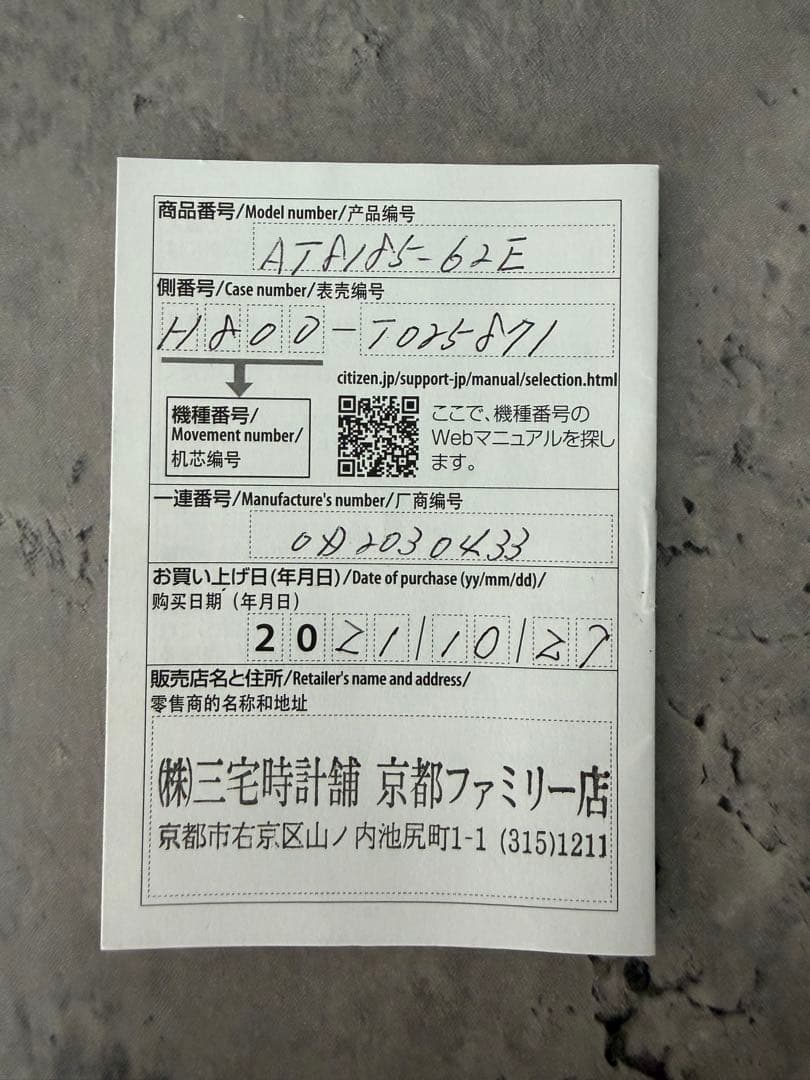 商品番号/Model number/产品编号
AT8185-62E
側番号/Case number/表壳编号
H800-T025871
citizen.jp/support-jp/manual/selection.html
機種番号/
Movement number/
机芯编号
ここで、機種番号の
Webマニュアルを探し
ます。
一連番号/Manufacture's number/厂商编号
0A2030433
お買い上げ日(年月日)/Date of purchase (yy/mm/dd)/
购买日期 (年月日)
2021/10/27
販売店名と住所/Retailer's name and address/
零售商的名称和地址
㈱三宅時計舗 京都ファミリー店
京都市右京区山ノ内池尻町1-1 (315)1211